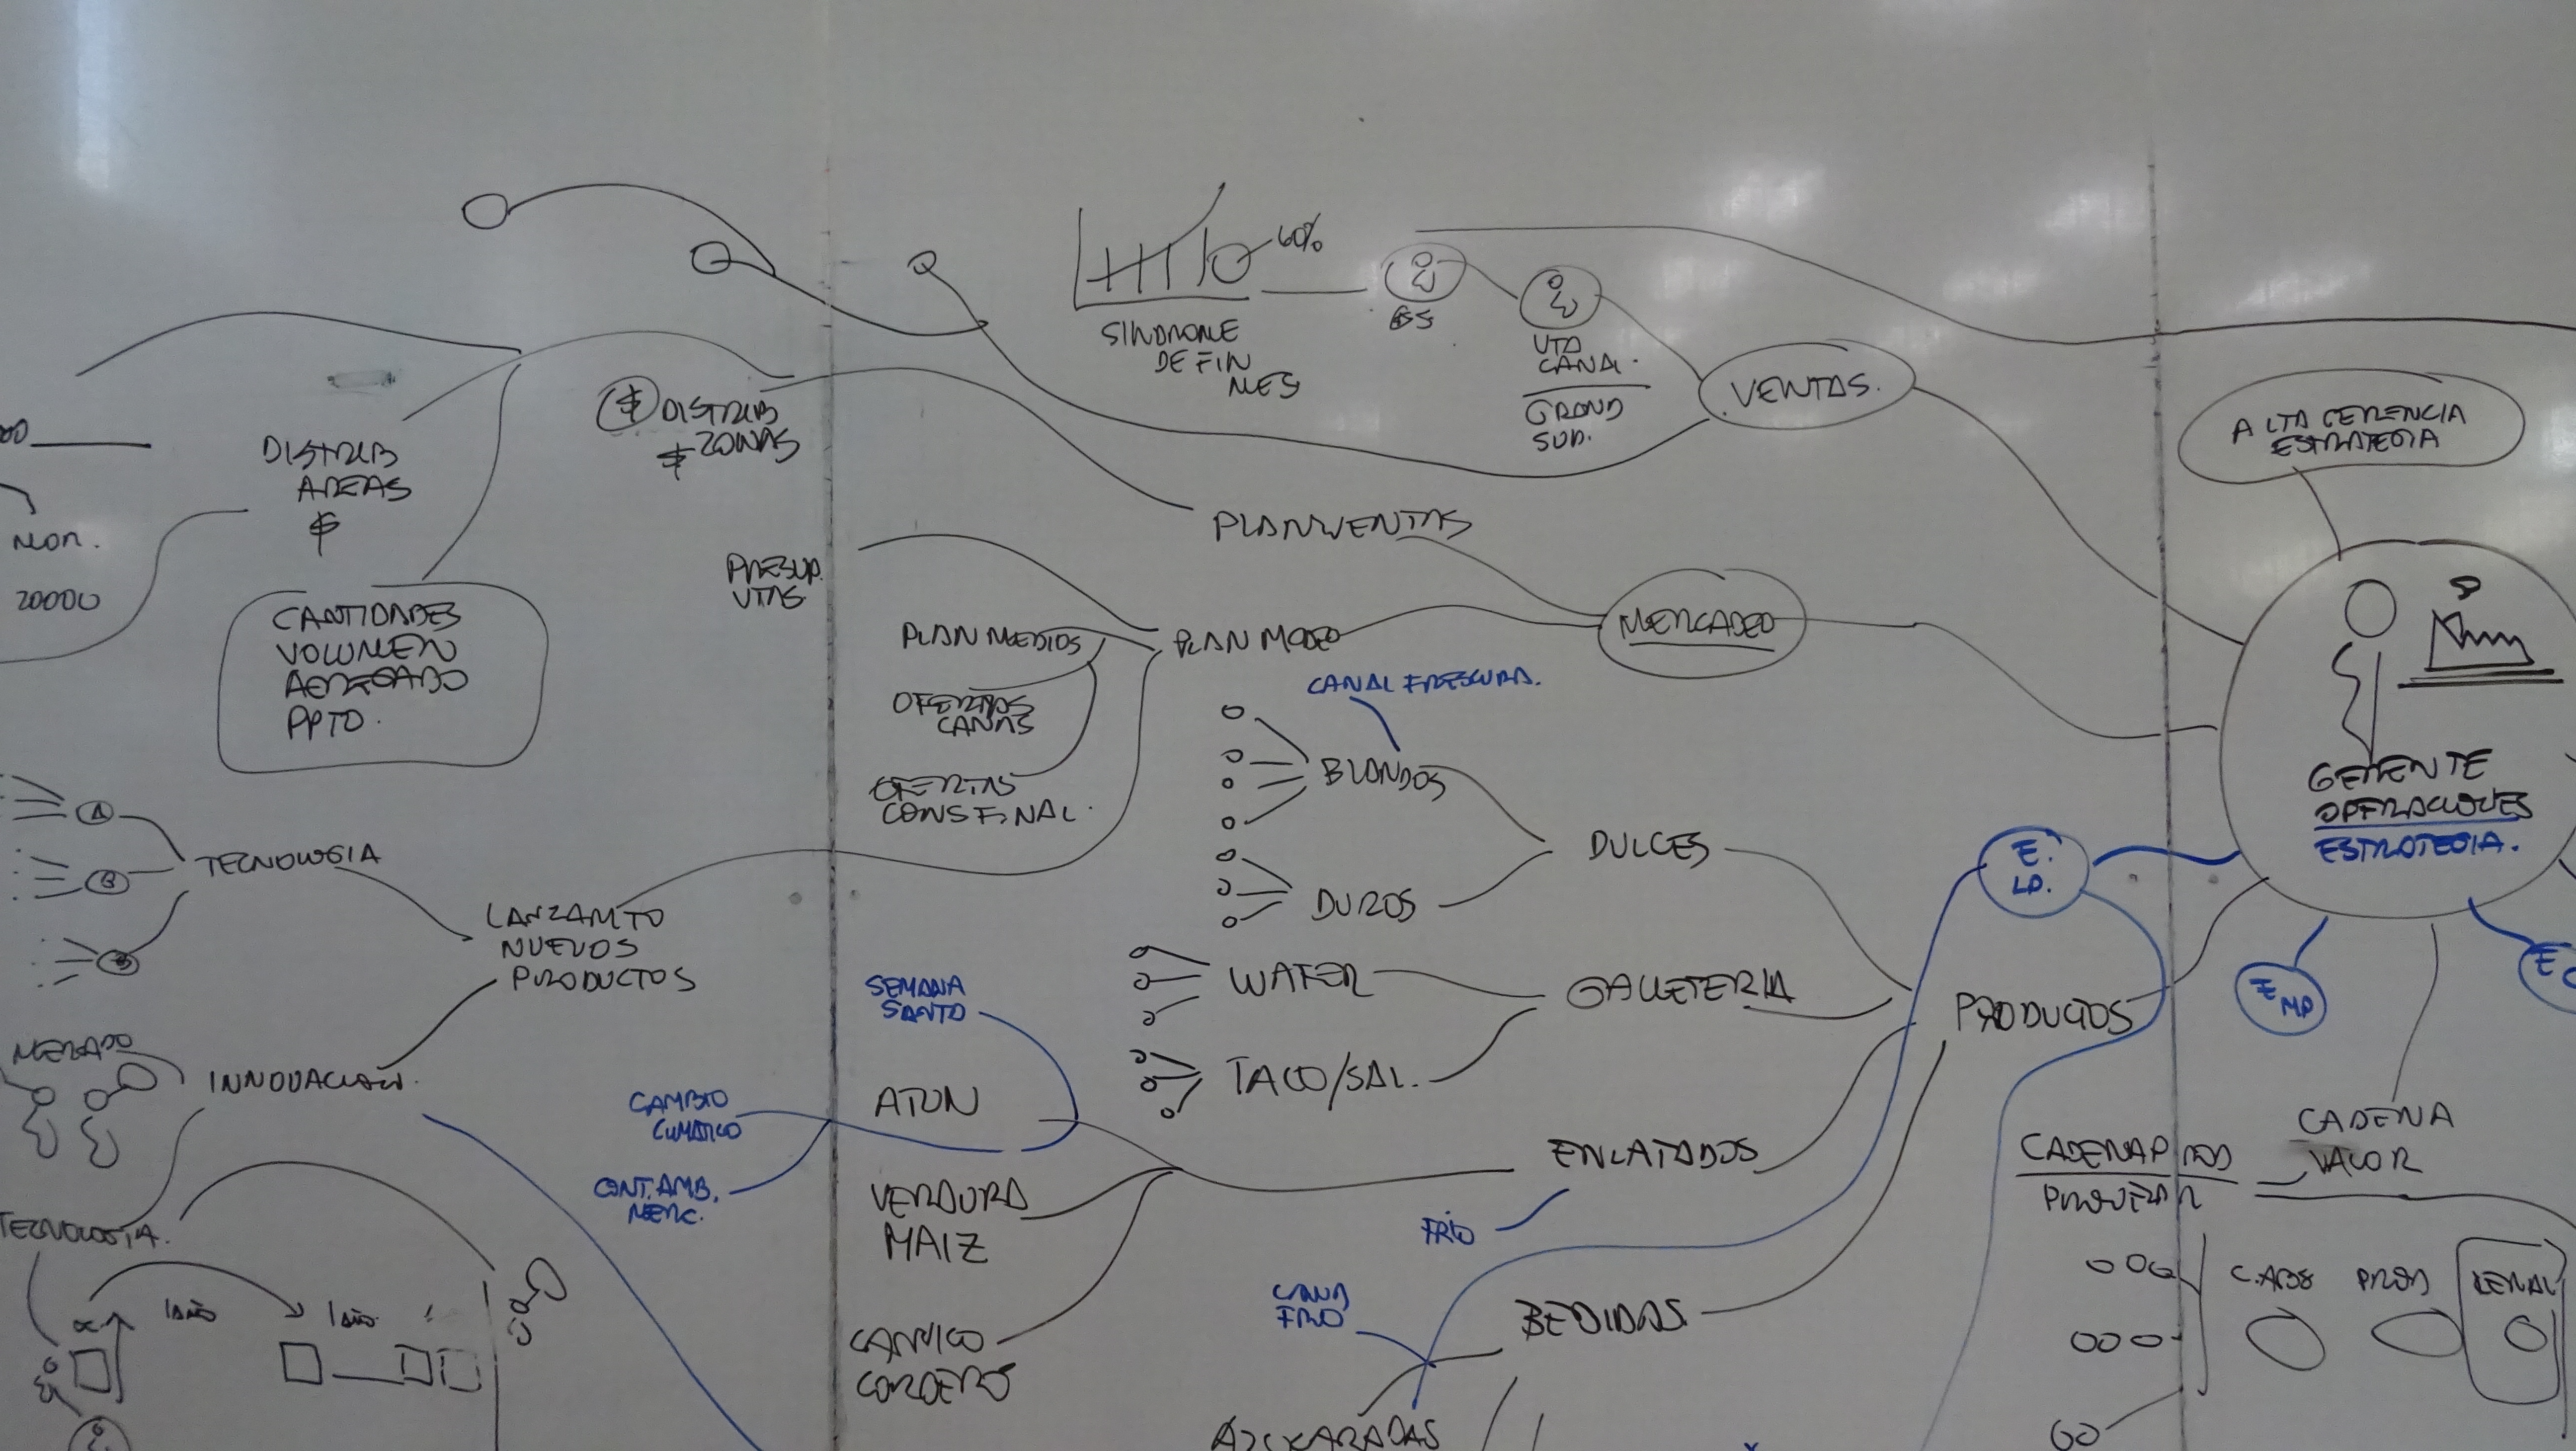 60%
SINDROME
DE FIN
MES
GS
VTA
CANAL.
GRAND
SUP.
VENTAS.
ALTA GERENCIA
ESTRATEGIA
$ DISTRIB
$ ZONAS
DISTRIB
AREAS
$
20000
PLAN VENTAS
PRESUP.
VTAS
CANTIDADES
VOLUMEN
AGREGADO
PPTO.
PLAN MEDIOS
PLAN MDEO
MERCADEO
OFERTAS
CANAS
OFERTAS
CONS FINAL.
CANAL FRESCURA.
BLANDOS
DULCES
DUROS
GERENTE
OPERACIONES
ESTRATEGIA.
E.
LP.
A
B
TECNOLOGIA
LANZAMTO
NUEVOS
PRODUCTOS
SEMANA
SANTA
WAFER
GALLETERIA
PRODUCTOS
E MP
E
TACO/SAL.
MERCADO
INNOVACION.
CAMBIO
CLIMATICO
ATUN
CONT. AMB.
MERC.
VERDURA
MAIZ
ENLATADOS
FRIO
CADENA
VALOR
CADENA PROD
TECNOLOGIA.
1 AÑO
1 AÑO
CANAL
FRIO
BEBIDAS
C. ABS
PROD
CARNICO
CORDEROS
AZUCARADAS